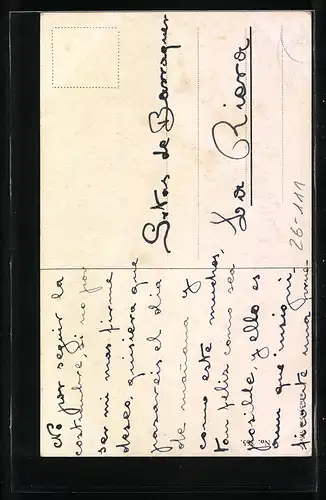 No por seguir la
costumbre, si no por
ser mi mas firme
deseo, quisiera que
pasarais el dia
de mañana y
como este muchos,
tan feliz como sea
posible, y ello es
aun que insigni-
ficante una
Srtas de Barraquer
La Riera
26-111